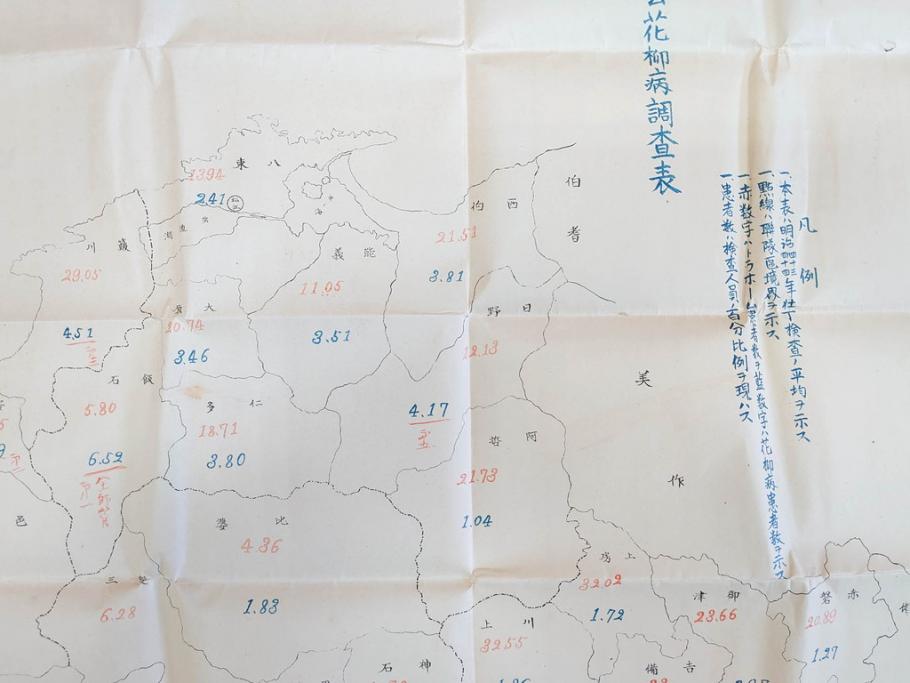 花柳病調査表
凡例
一、本表ハ明治四十三年壮丁検査ノ平均ヲ示ス
一、點線ハ聯隊区境界ヲ示ス
一、赤数字ハトラホーム患者数ヲ藍数字ハ花柳病患者数ヲ示ス
一、患者数ハ検査人員ノ百分比例ヲ現ハス
伯耆
美作
八束
13.94
2.41
西伯
21.51
3.81
簸川
29.05
4.51
能義
11.05
3.51
大原
20.74
3.46
日野
12.13
4.17
飯石
5.80
6.52
仁多
18.71
3.80
阿哲
21.73
1.04
邑
比婆
4.36
1.83
双三
6.28
上房
32.02
1.72
津郡
23.66
赤磐
20.89
1.27
川上
32.55
神石
吉備